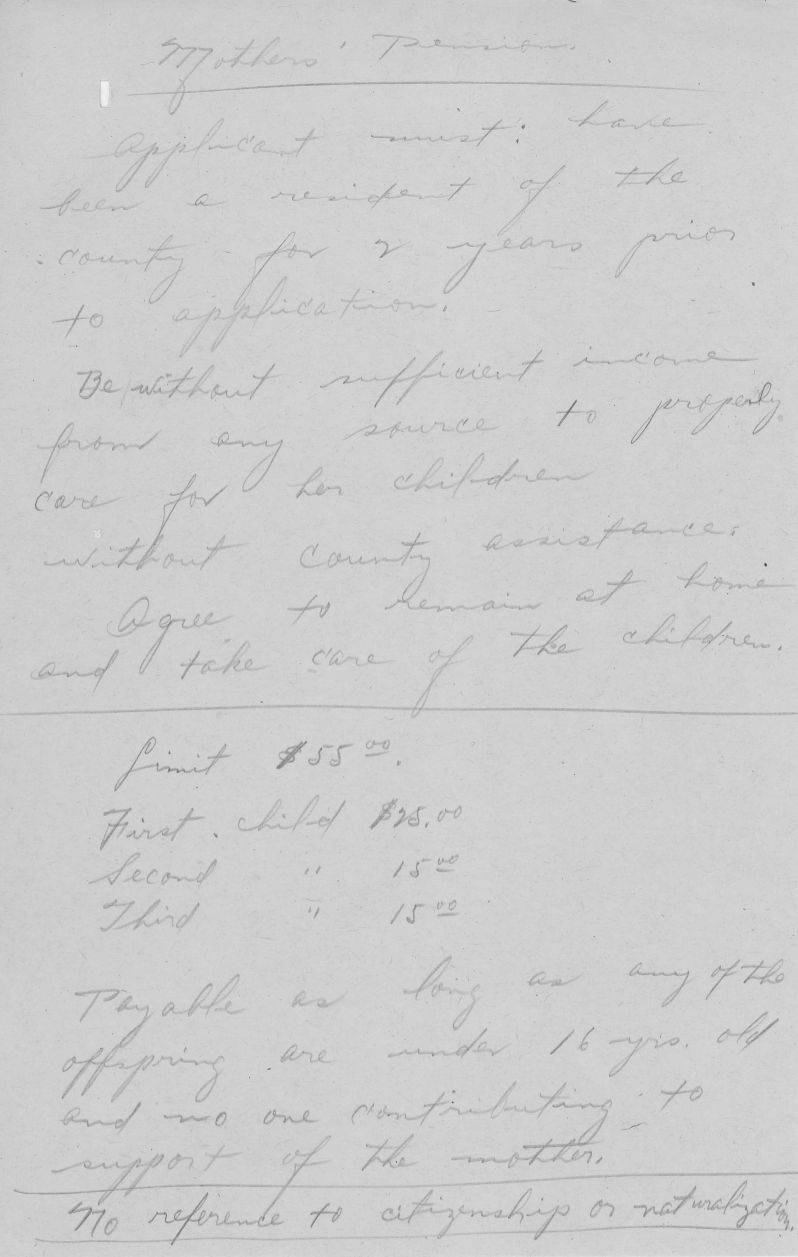 Mothers' Pension.
Applicant must: have
been a resident of the
county for 2 years prior
to application.
Be without sufficient income
from any source to properly
care for her children
without county assistance.
Agree to remain at home
and take care of the children.
Limit $55.00.
First child $25.00
Second " 15.00
Third " 15.00
Payable as long as any of the
offspring are under 16 yrs. old
and no one contributing to
support of the mother.
No reference to citizenship or naturalization.